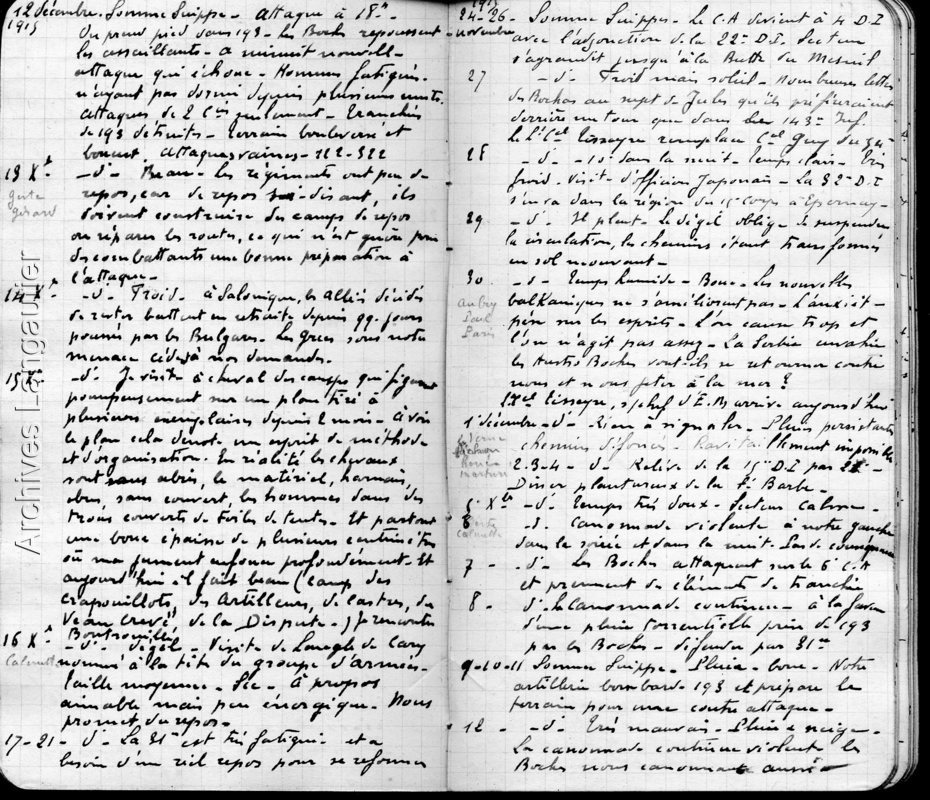 12 décembre. Somme Suippe - Attaque à 18h -
1915
On prend pied dans 193 - Les Boches repoussent
les assaillants - a minuit nouvelle
attaque qui échoue - Hommes fatigués.
n'ayant pas dormi depuis plusieurs nuits.
attaques de 2 Cies seulement - Tranchées
de 193 détruites - Terrain bouleversé et
boueux. Attaques vaines - 322
13 Xbre -d- Beau - Les régiments ont peu de
repos, car de repos soi-disant, ils
doivent construire des camps de repos
ou réparer les routes, ce qui n'est guère pour
des combattants une bonne préparation à
l'attaque -
Girard
14 -d- Froid - à Salonique, les Alliés décidés
de rester battent en retraite depuis qq. jours
poussés par les Bulgares. Les Grecs sous notre
menace cèdent à nos demandes.
15 -d- Je visite à cheval des camps qui figurent
pompeusement sur un plan tiré à
plusieurs exemplaires depuis 2 mois - A voir
le plan cela dénote un esprit de méthode
et d'organisation. En réalité les chevaux
sont sans abris, le matériel, harnais,
obus, sans couvert, les hommes dans des
trous couverts de toiles de tentes - Et partout
une boue épaisse de plusieurs centimètres
où ma jument enfonce profondément - Et
aujourd'hui il fait beau (camp des
crapouillots, des Artilleurs, de Castres, du
Veau Crevé, de la Dispute -) Je rencontre
16 Xbre -d- Dégel - Visite de Langle de Cary
Calmette
nommé à la tête du groupe d'armées -
Taille moyenne - Sec - à propos
aimable mais peu énergique - Nous
promet du repos -
17-21- d- La 21e est très fatiguée et a
besoin d'un réel repos pour se reformer
1915
24-26- Somme Suippes - Le C.A devient à 4 D.I
novembre
avec l'adjonction de la 22e D.I. Secteur
s'agrandit jusqu'à la Butte du Mesnil
27 -d- Froid mais soleil - Nombreuses lettres
des Boches au sujet de Jules qu'ils préfèreraient
derrière un four que dans 143e Inf.
le Lt Cel Tisseyre remplace Cel Guy du
28 -d- -10 dans la nuit - temps clair - Très
froid. Visite d'officiers Japonais - La 32e D.I
s'en va dans la région du 15 corps à Epernay -
29 -d- Il pleut - Le dégel oblige de suspendre
la circulation, les chemins étant transformés
en sol mouvant -
30 -d- Temps humide - Boue - Les nouvelles
balkaniques ne s'améliorent pas - L'anxiété
Aubry
Paul
Paris
pèse sur les esprits - L'on cause trop et
l'on n'agit pas assez - La Serbie envahie
les Austro Boches vont-ils se retourner contre
nous et nous jeter à la mer ?
Lt Cel Tisseyre, s/chef d'E.M arrive aujourd'hui
1er décembre -d- Rien à signaler - Pluie persistante
chemins défoncés - Ravitaillement impossible
2-3-4 - d- Relève de la 15e D.I par 21e -
Dîner plantureux de la Ste Barbe -
5 Xbre -d- temps très doux - Secteur calme -
6 -d- Canonnade violente à notre gauche
Calmette
dans la soirée et dans la nuit - Pas de conséquence
7 - -d- Les Boches attaquent sur le 6 C.A
et prennent des éléments de tranchée
8 - d- La canonnade continue - à la faveur
d'une pluie torrentielle prise de 193
par les Boches - défendu par 31e
9-10-11 Somme Suippe - Pluie - boue - Notre
artillerie bombarde 193 et prépare le
terrain pour une contre attaque -
12 - -d- Très mauvais - Pluie & neige -
La canonnade continue violente - les
Boches nous canonnent aussi
Archives Langautier